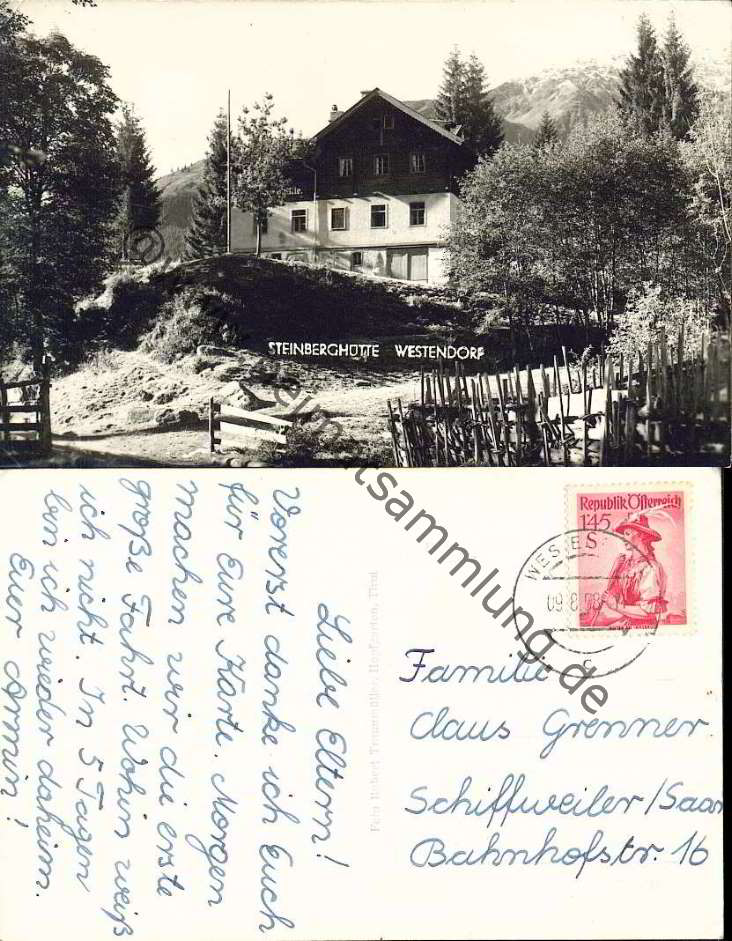 STEINBERGHÜTTE WESTENDORF
Liebe Eltern!
Vorerst danke ich Euch
für Eure Karte. Morgen
machen wir die erste
große Fahrt. Wohin weiß
ich nicht. In 5 Tagen
bin ich wieder daheim.
Euer Armin!
Foto Robert Traunmüller, Hopfgarten, Tirol
Republik Österreich
1.45
09.8.58
Familie
Claus Grenner.
Schiffweiler/Saar
Bahnhofstr. 16
heimatsammlung.de